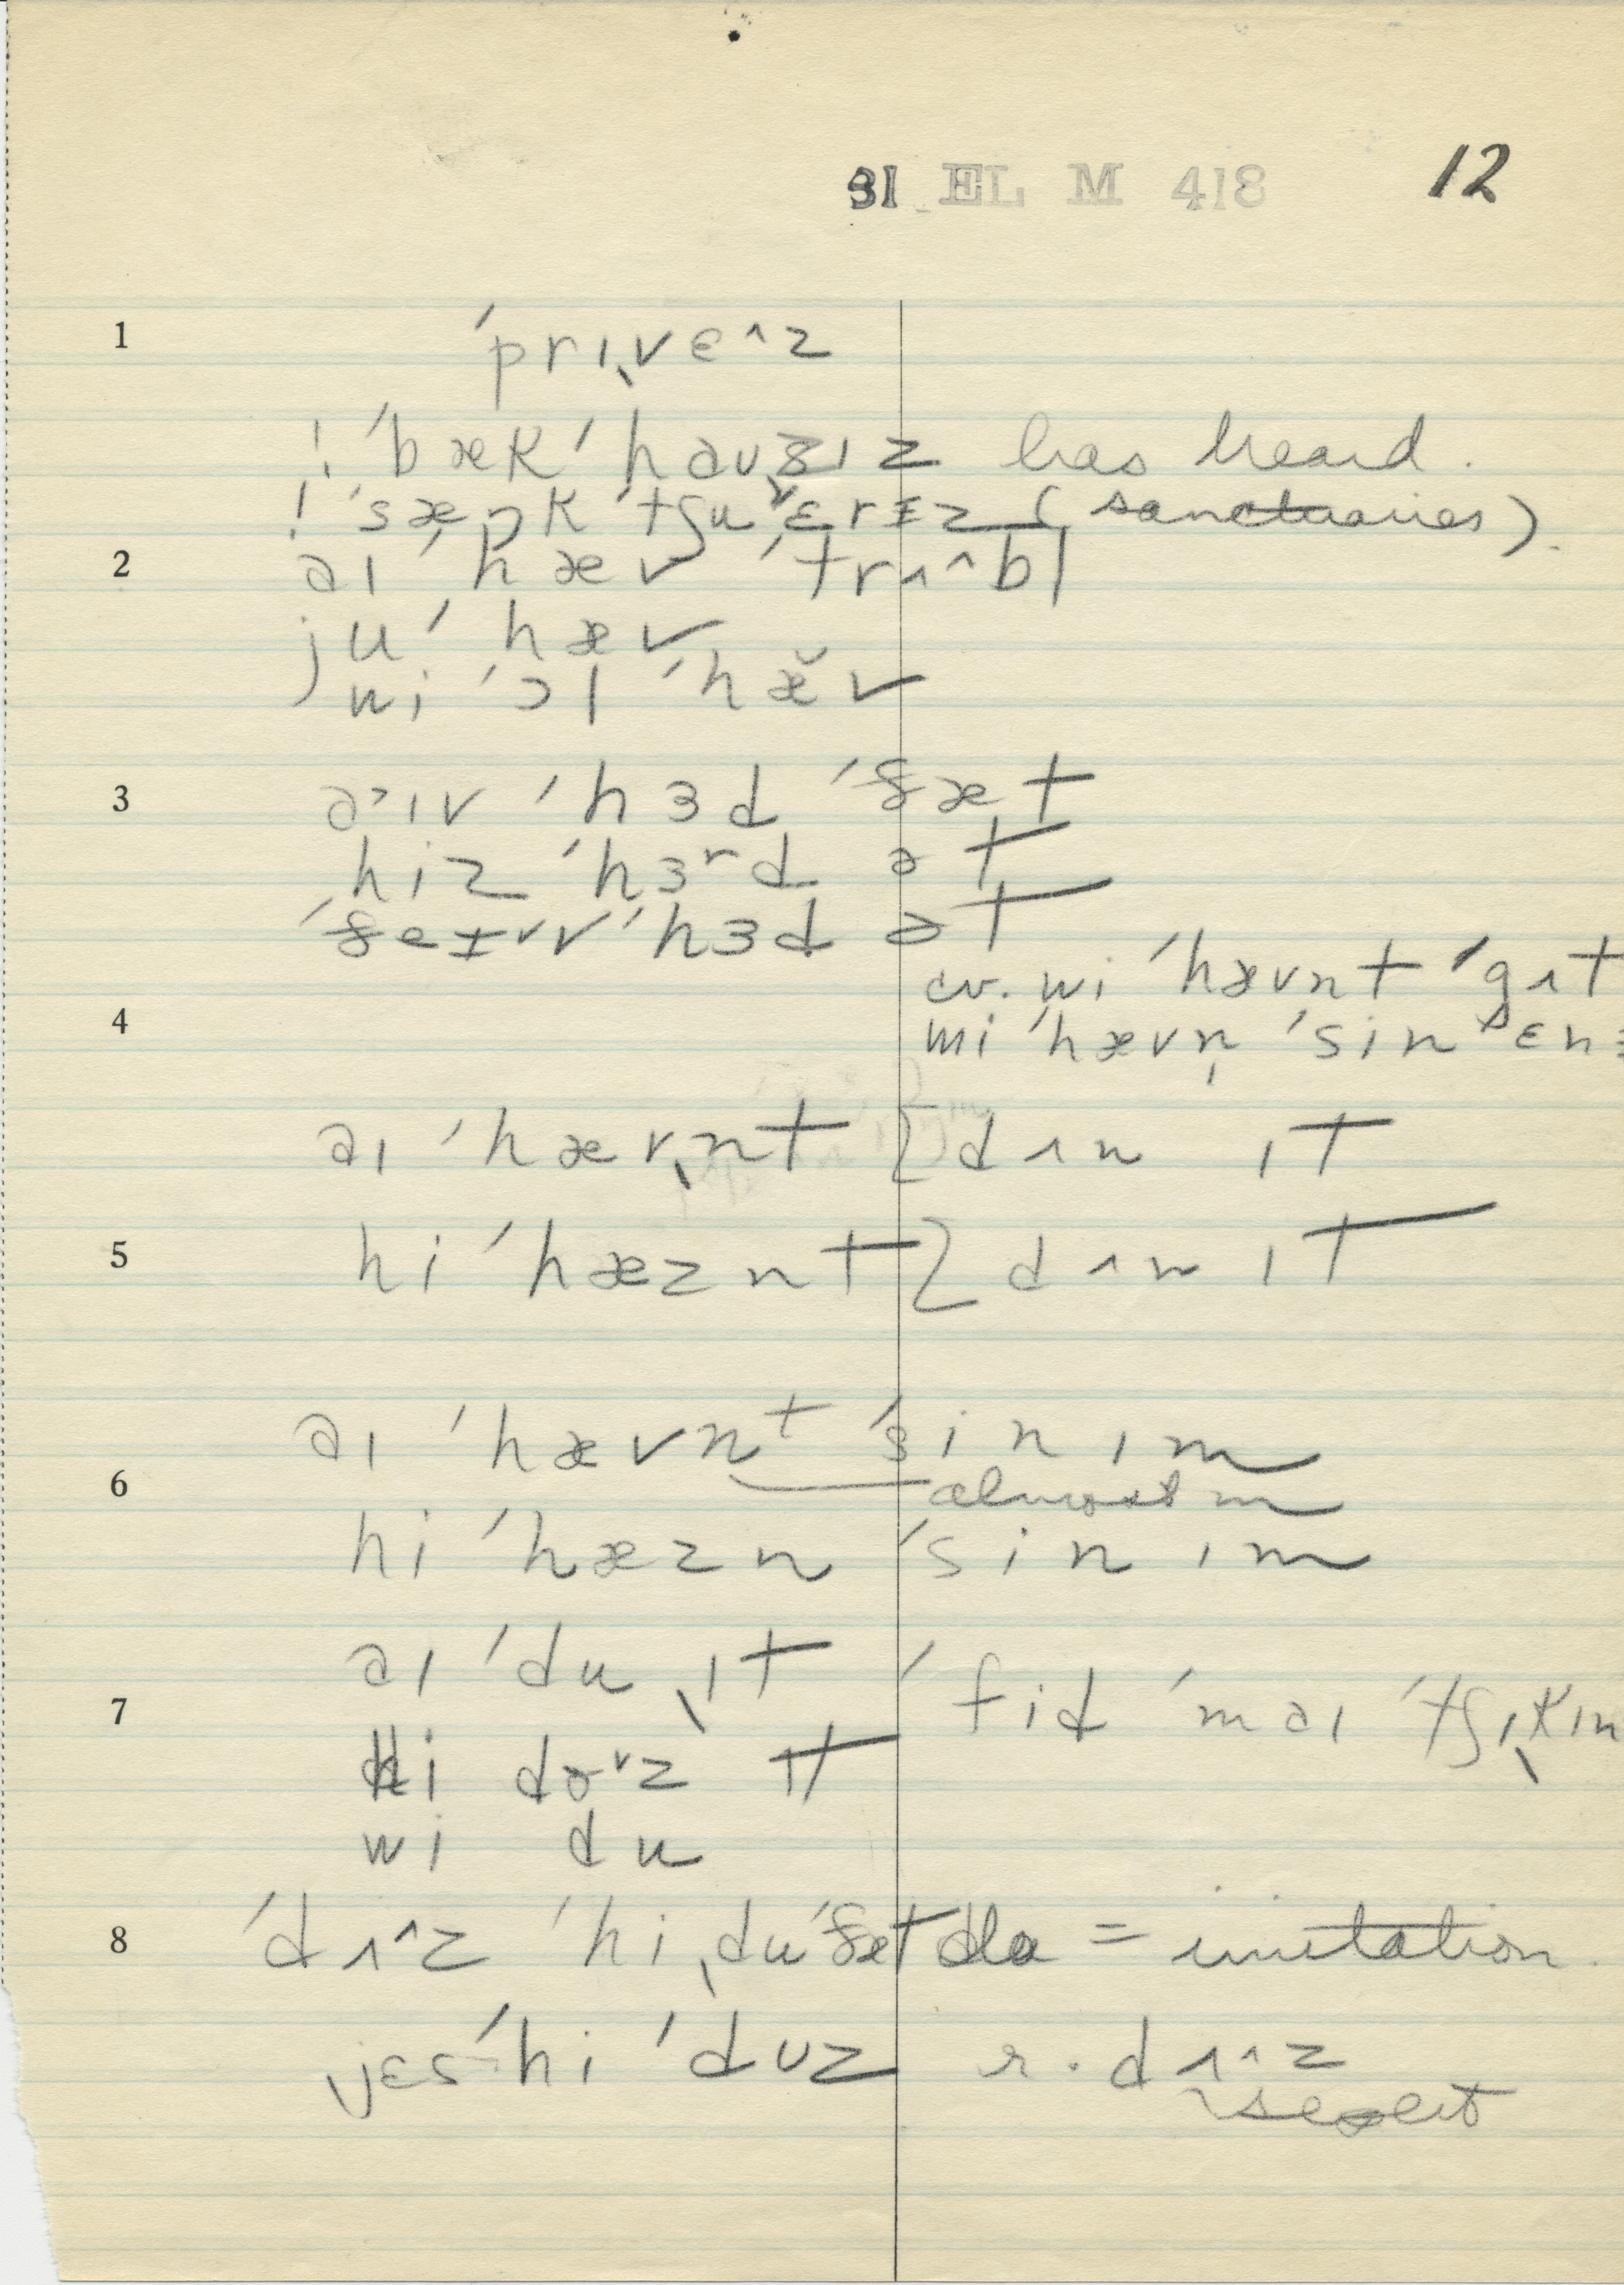 31 EL M 418 12
1 ˈprɪˌvɛ^z
! ˈbækˈhaʊzɪz has heard.
! ˈsæŋkˈtʃuᵛɛrɪz (sanctuaries).
2 aɪ ˈhæv ˈtrʌ^bl
juˈ hæv
wi ˈɔl ˈhæ̆v
3 a˃ɪv ˈhɜd ˈðæt
hiz ˈhɜʳd ət
ˈðeɪᵛv ˈhɜd ət
cv. wi ˈhævnt ˈgʌt
4 wi ˈhævn̩ ˈsin ˈɛnɪ
aɪ ˈhævˌnt [dʌn ɪt
5 hi ˈhæznt [dʌn ɪt
aɪ ˈhævnᵗ ˈsin ɪm
6 almost m
hi ˈhæzn ˈsin ɪm
aɪ ˈdu ˌɪt
7 ˈfid ˈmaɪ ˈtʃɪˌkɪn
hi doᵛz ɪt
wi du
8 ˈdʌ^z ˈhi ˌduˈðæt dla = imitation.
jɛsˈhi ˈdʊz r. dʌ^z